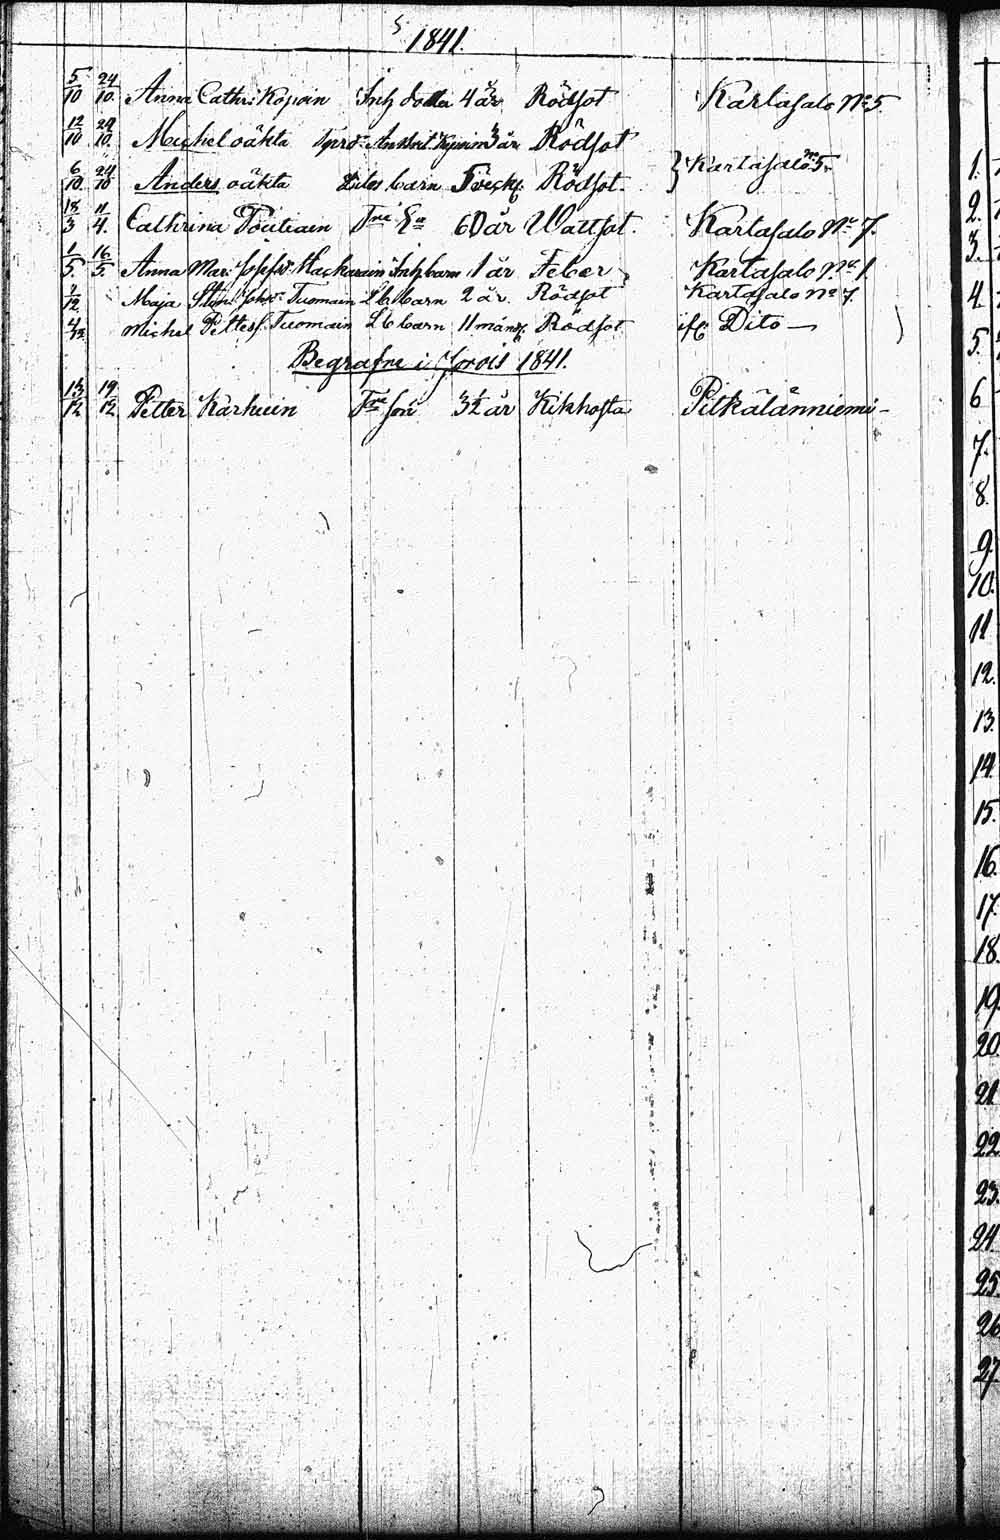 1841.
5/10 24/10. Anna Cathr: Kopoin Inh dotter 4 år Rödsot Kartasalo No 5
12/10 24/10. Michel oäkta 3 år Rödsot
6/10 24/10 Anders oäkta barn 5 veck. Rödsot. } Kartasalo No 5.
18/3 11/4. Cathrina Poutiain Fri En 60 år Wattsot. Kartasalo No 7.
1/5. 16/5. Anna Mar: Josefsd. Inh barn 1 år Feber Kartasalo No 1.
/12. Maja Stin: Johsd. Tuomain barn 2 år. Rödsot Kartasalo No 7.
4/12. Michel Pettesf. Tuomain barn 11 mån. Rödsot Dito —
Begrafne i Jorois 1841.
13/12 19/12 Petter Karhuin son 3½ år Kikhosta Pitkälänniemi -
1.
2.
3.
4.
5.
6
7.
8.
9.
10.
11
12.
13.
14.
15.
16.
17.
18.
19
20.
21
22
23.
24.
25.
26
27.